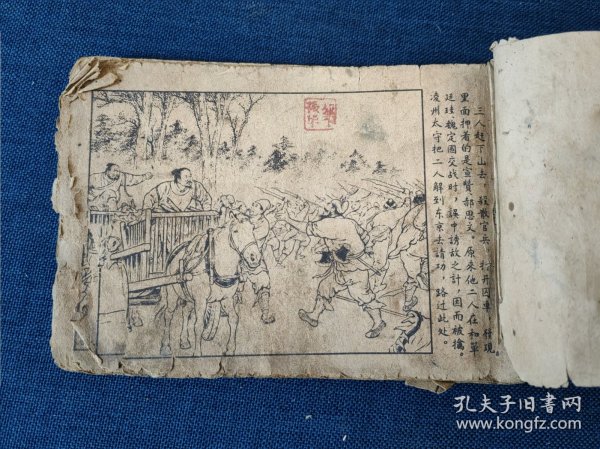 三人赶下山去，殺散官兵，打开囚車，發現
里面押着的是宣贊郝思文。原来他二人在和單
廷珪魏定國交战时，誤中誘敌之計，因而被擒。
凌州太守把二人解到东京去請功，路过此处。
孔夫子旧書网
www.kongfz.com